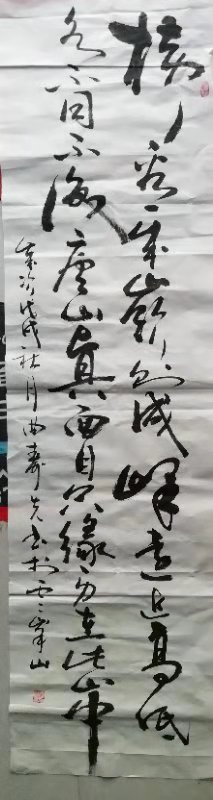 横看成岭侧成峰远近高低
各不同不识庐山真面目只缘身在此山中
岁次戊戌秋月曲寿